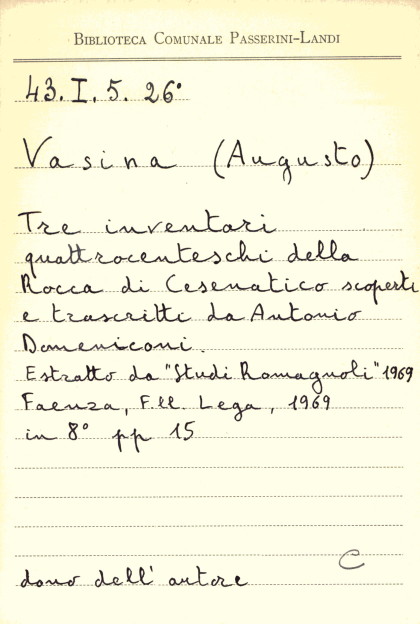 BIBLIOTECA COMUNALE PASSERINI-LANDI
43. I. 5. 26°
Vasina (Augusto)
Tre inventari
quattrocenteschi della
Rocca di Cesenatico scoperti
e trascritti da Antonio
Domeniconi.
Estratto da "Studi Romagnoli" 1969
Faenza, F.lli Lega, 1969
in 8° pp 15
C
dono dell'autore